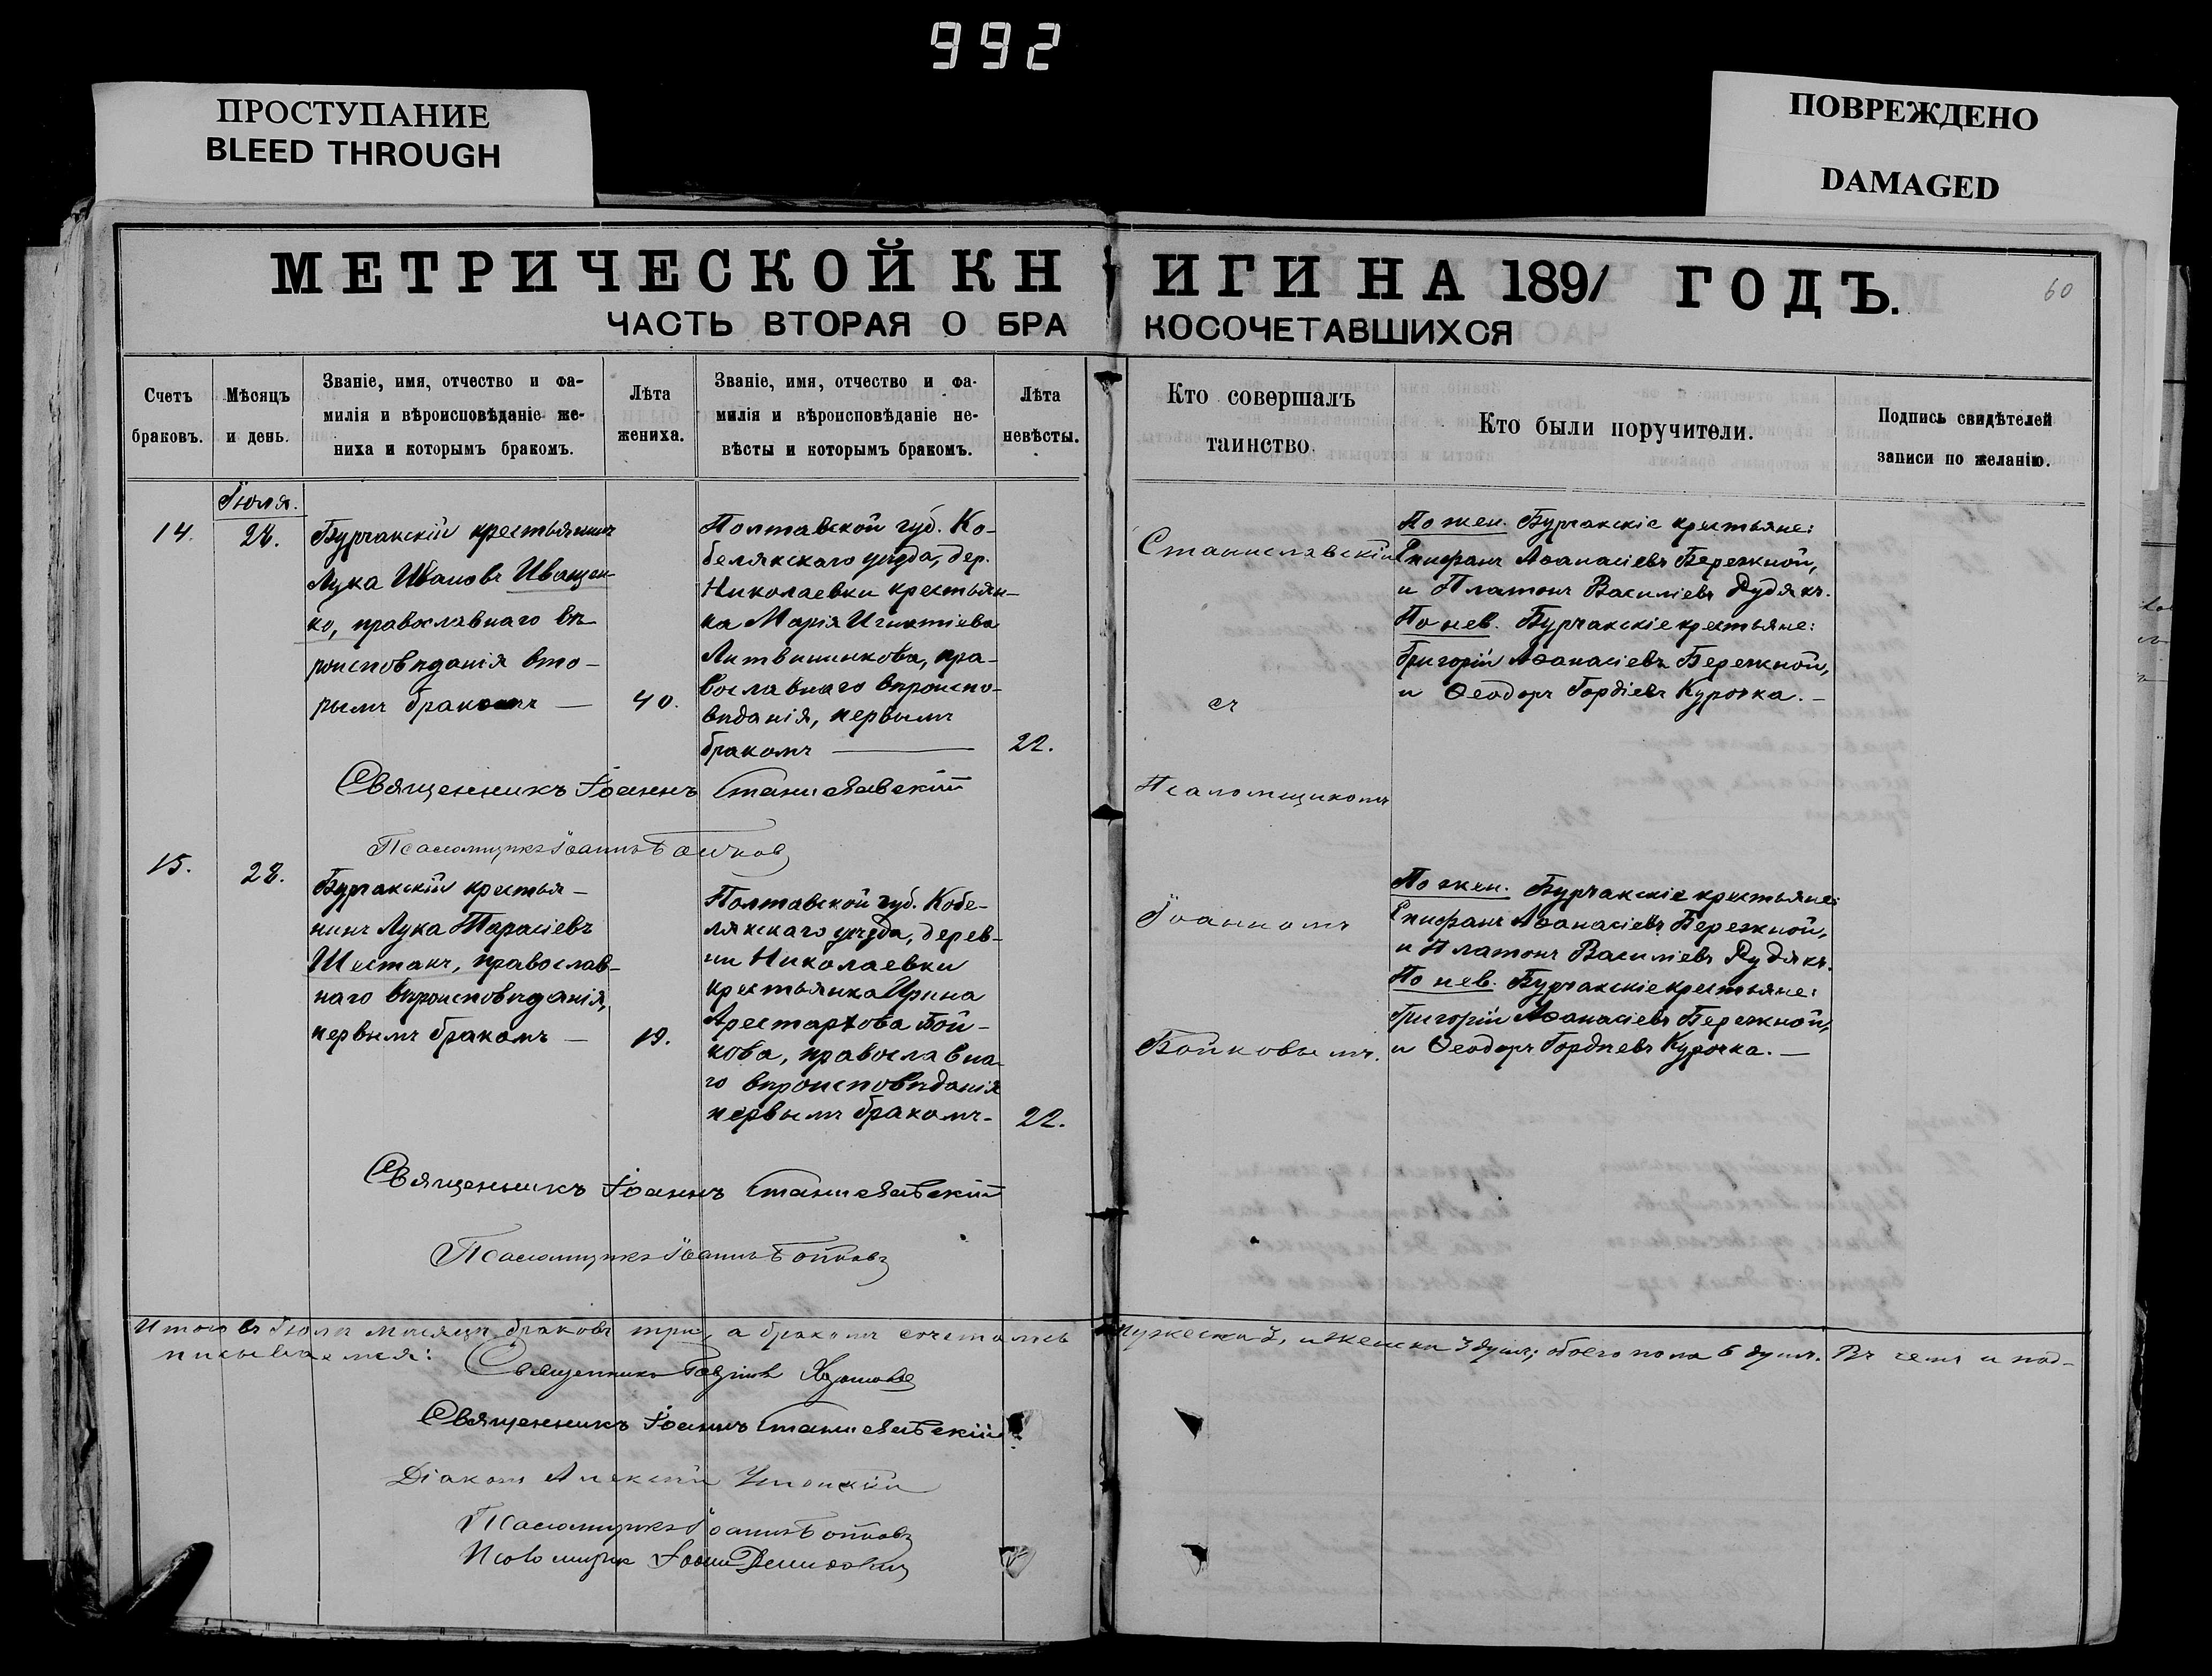 992
ПРОСТУПАНИЕ
BLEED THROUGH
ПОВРЕЖДЕНО
DAMAGED
МЕТРИЧЕСКОЙ КНИГИ НА 1891 ГОДЪ.
60
ЧАСТЬ ВТОРАЯ О БРАКОСОЧЕТАВШИХСЯ
Счетъ
браковъ.
Мѣсяцъ
и день.
Званіе, имя, отчество и фа-
милія и вѣроисповѣданіе же-
ниха и которымъ бракомъ.
Лѣта
жениха.
Званіе, имя, отчество и фа-
милія и вѣроисповѣданіе не-
вѣсты и которымъ бракомъ.
Лѣта
невѣсты.
Кто совершалъ
таинство.
Кто были поручители.
Подпись свидѣтелей
записи по желанію.
Іюля.
14.
28.
Бурчакскій крестьянинъ
Лука Ивановъ Иващен-
ко, православнаго вѣ-
роисповѣданія вто-
рымъ бракомъ —
40.
Полтавской губ. Ко-
белякскаго уѣзда, дер.
Николаевки крестьян-
ка Марія Игнатіева
Литвиненкова, пра-
вославнаго вѣроиспо-
вѣданія, первымъ
бракомъ —
22.
Станиславскій
съ
Псаломщикомъ
Іоанномъ
Бойковымъ.
По жен. Бурчакскіе крестьяне:
Епифанъ Аѳанасіевъ Бережной,
и Платонъ Василіевъ Рудякъ.
По нев. Бурчакскіе крестьяне:
Григорій Аѳанасіевъ Бережной,
и Ѳеодоръ Гордіевъ Курочка. —
Священникъ Іоаннъ Станиславскій
Псаломщикъ Іоаннъ Бойковъ
15.
28.
Бурчакскій крестья-
нинъ Лука Тарасіевъ
Шестакъ, православ-
наго вѣроисповѣданія,
первымъ бракомъ —
19.
Полтавской губ. Кобе-
лякскаго уѣзда, дерев-
ни Николаевки
крестьянка Ирина
Арестархова Бой-
кова, православна-
го вѣроисповѣданія
первымъ бракомъ-
22.
По жен. Бурчакскіе крестьяне:
Епифанъ Аѳанасіевъ Бережной,
и Платонъ Василіевъ Рудякъ.
По нев. Бурчакскіе крестьяне:
Григорій Аѳанасіевъ Бережной,
и Ѳеодоръ Гордіевъ Курочка. —
Священникъ Іоаннъ Станиславскій
Псаломщикъ Іоаннъ Бойковъ
Итого въ Іюлѣ мѣсяцѣ браковъ три, а бракомъ сочетались мужеска 3, и женска 3 душъ; обоего пола 6 душъ. Въ чемъ и под-
писываемся:
Священникъ
Священникъ Іоаннъ Станиславскій
Діаконъ Алексій
Псаломщикъ Іоаннъ Бойковъ
Псаломщик Іоанн